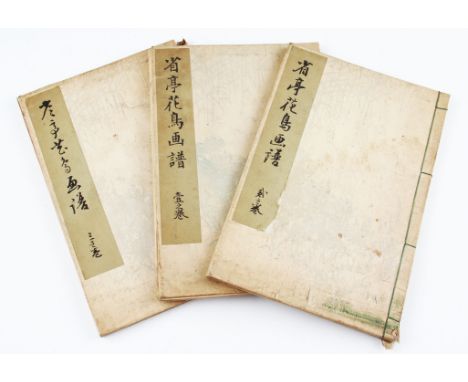 省亭花鳥画譜
三之巻
省亭花鳥画譜
壹之巻
省亭花鳥画譜
貳之巻